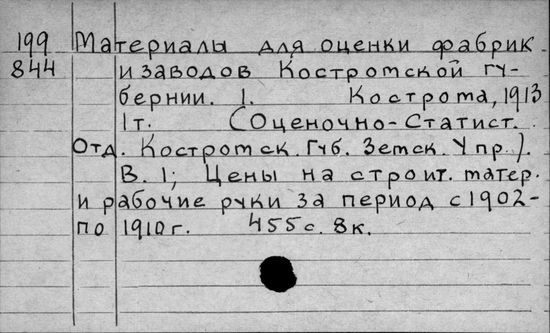 199 Материалы для оценки фабрик
844 и заводов Костромской гу-
бернии. 1. Кострома, 1913
1т. (Оценочно-Статист.
Отд. Костромск. Губ. Земск. Упр.).
В. 1; Цены на строит. матер.
и рабочие руки за период с 1902-
по 1910 г. 455 с. 8к.